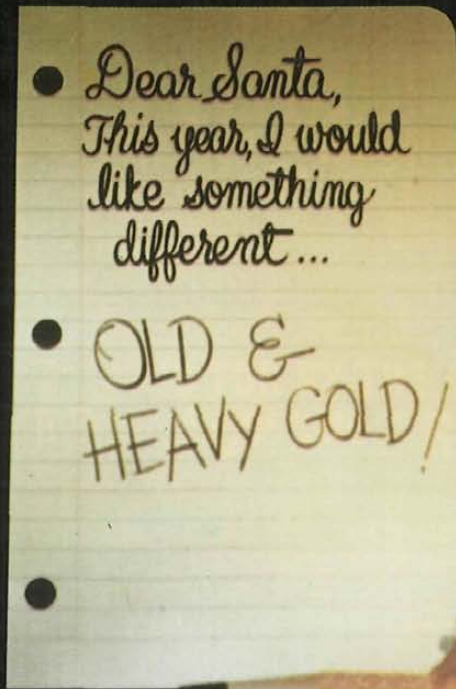 Dear Santa,
This year, I would
like something
different...
OLD &
HEAVY GOLD!